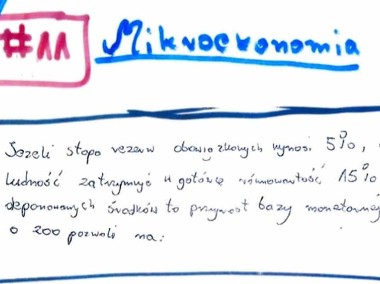 #11 Mikroekonomia
Jeżeli stopa rezerw obowiązkowych wynosi 5%,
ludność zatrzymuje w gotówce równowartość 15%
deponowanych środków to przyrost bazy monetarnej
o 200 pozwoli na: